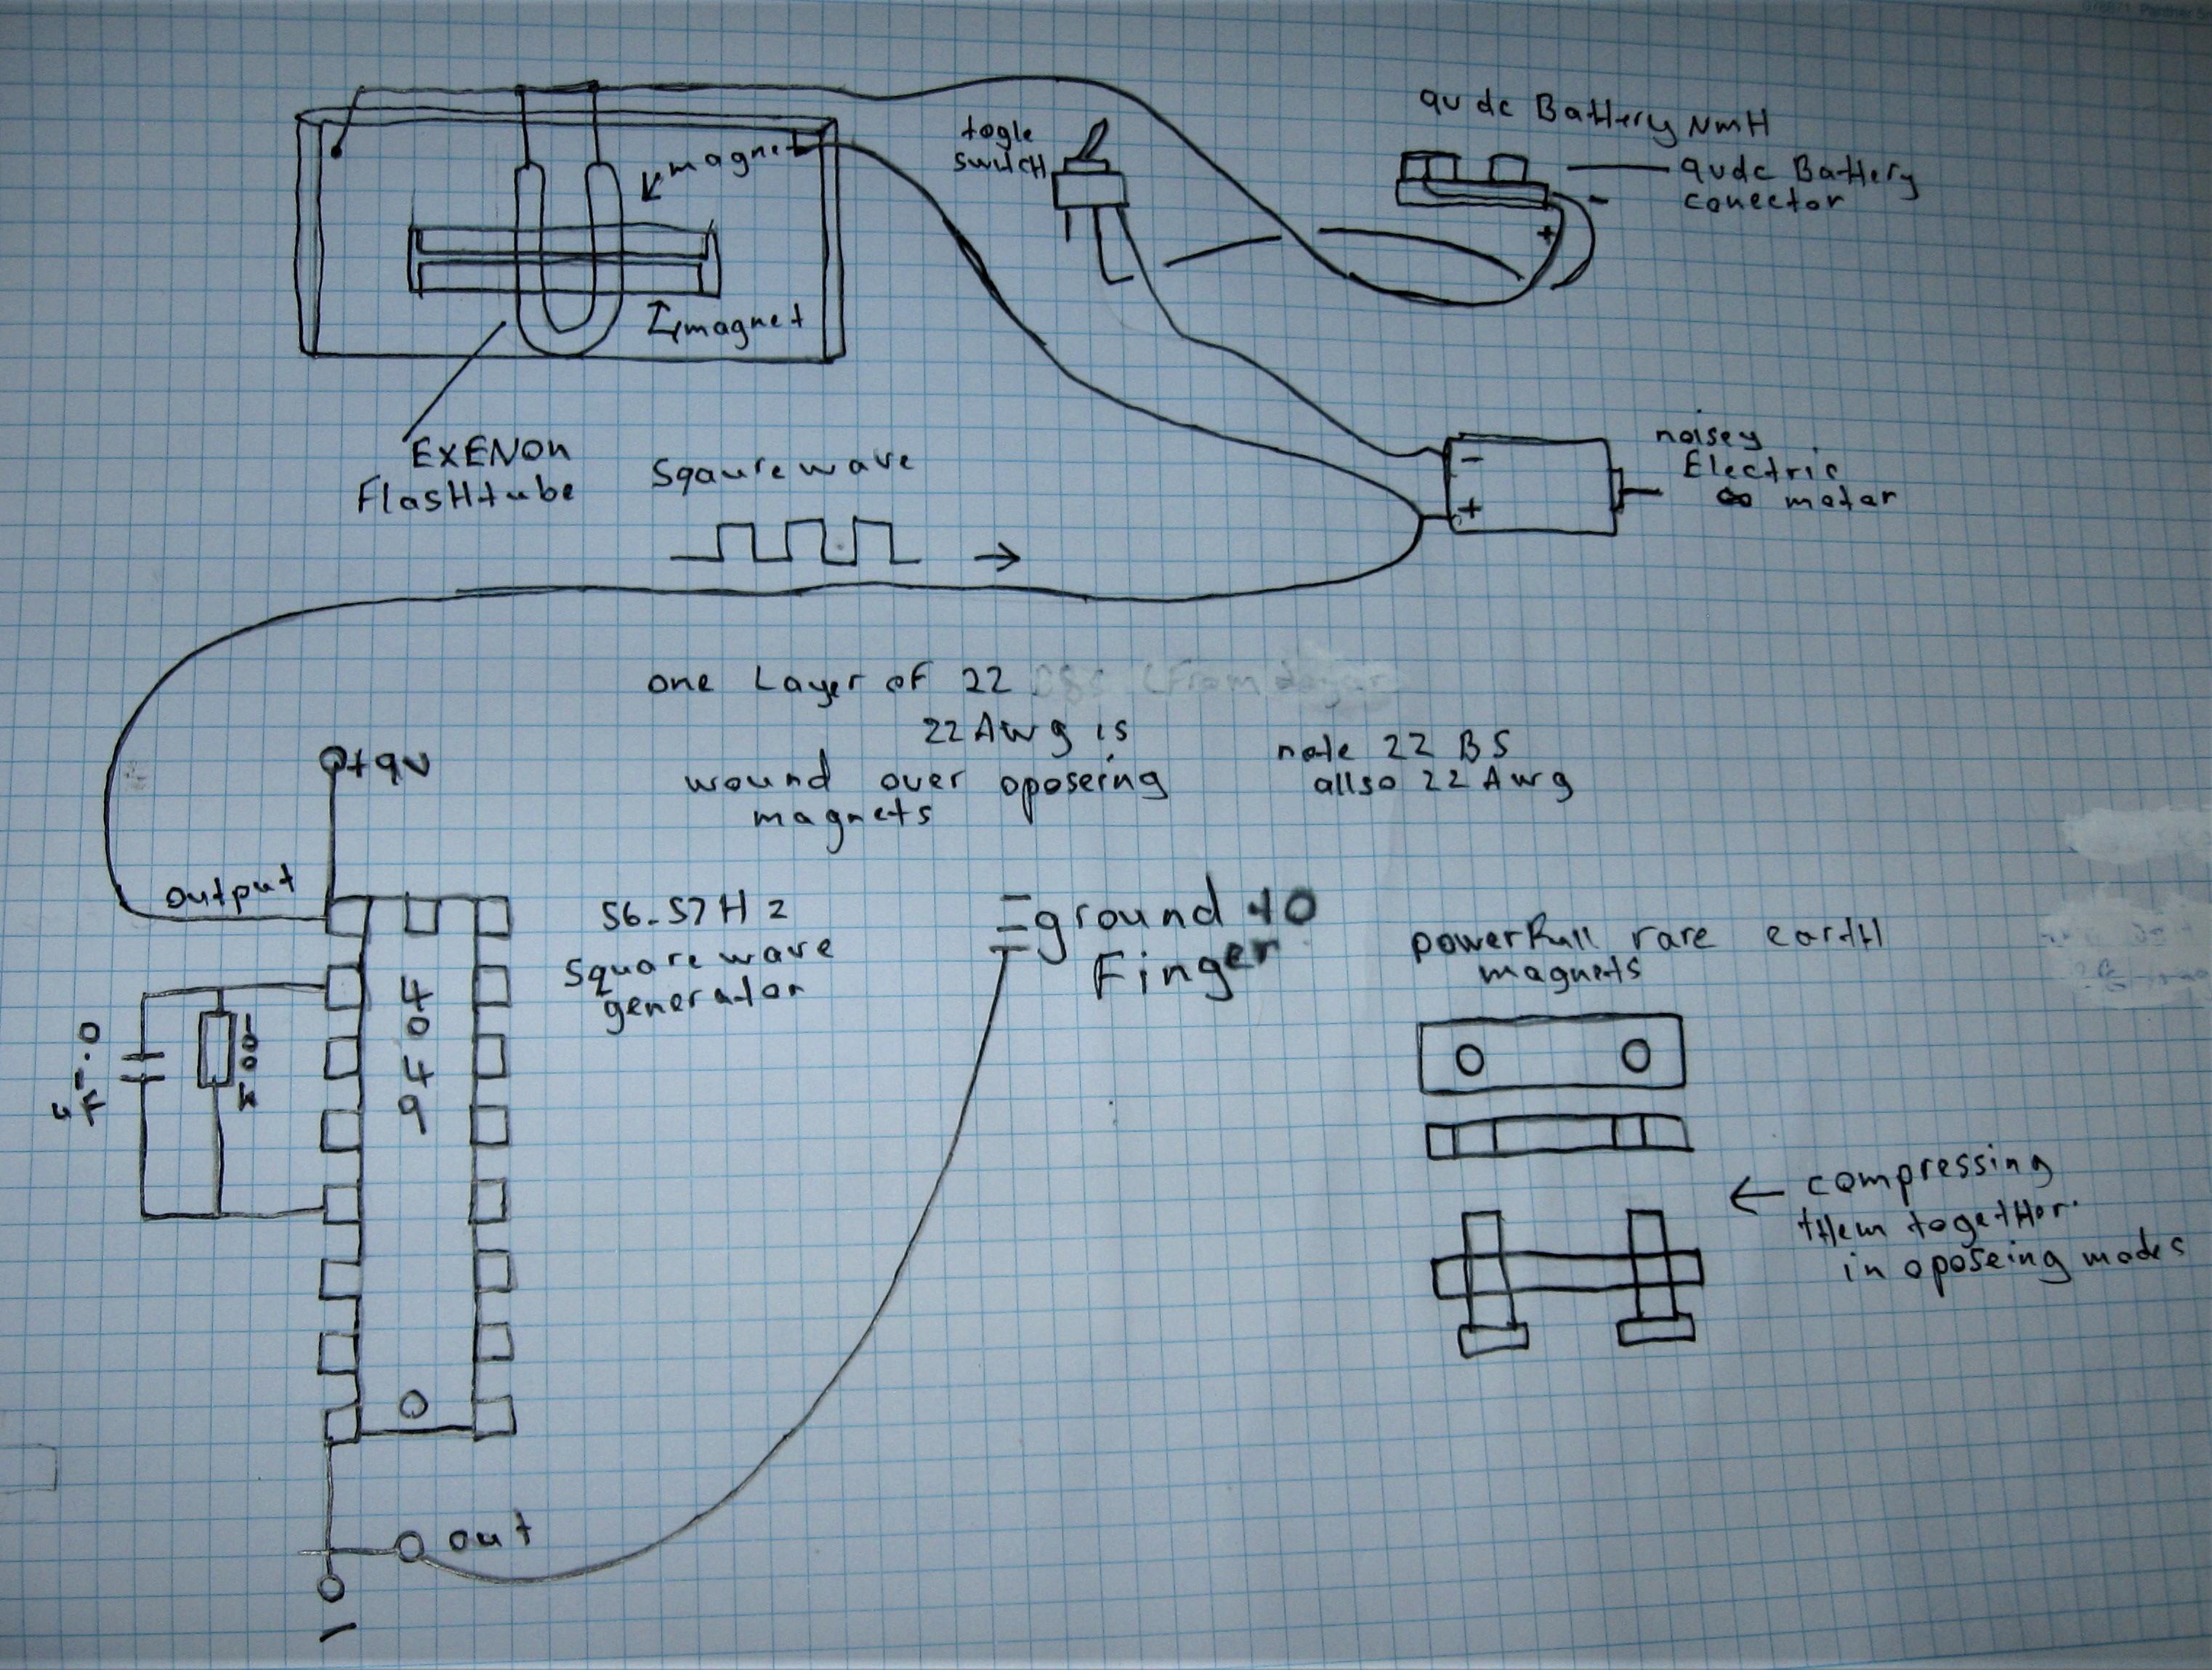 togle
switcH
9v dc Battery NmH
9vdc Battery
conector
-
+
magnet
magnet
EXENON
FlasHtube
Sqaurewave
-
+
noisey
Electric
motar
one Layer of 22
22 Awg is
wound over oposering
magnets
note 22 BS
allso 22 Awg
+9v
output
56-57Hz
Square wave
generator
ground to
Finger
powerfull rare eartH
magnets
4049
100k
compressing
tHem togetHer.
in oposeing modes
out
-